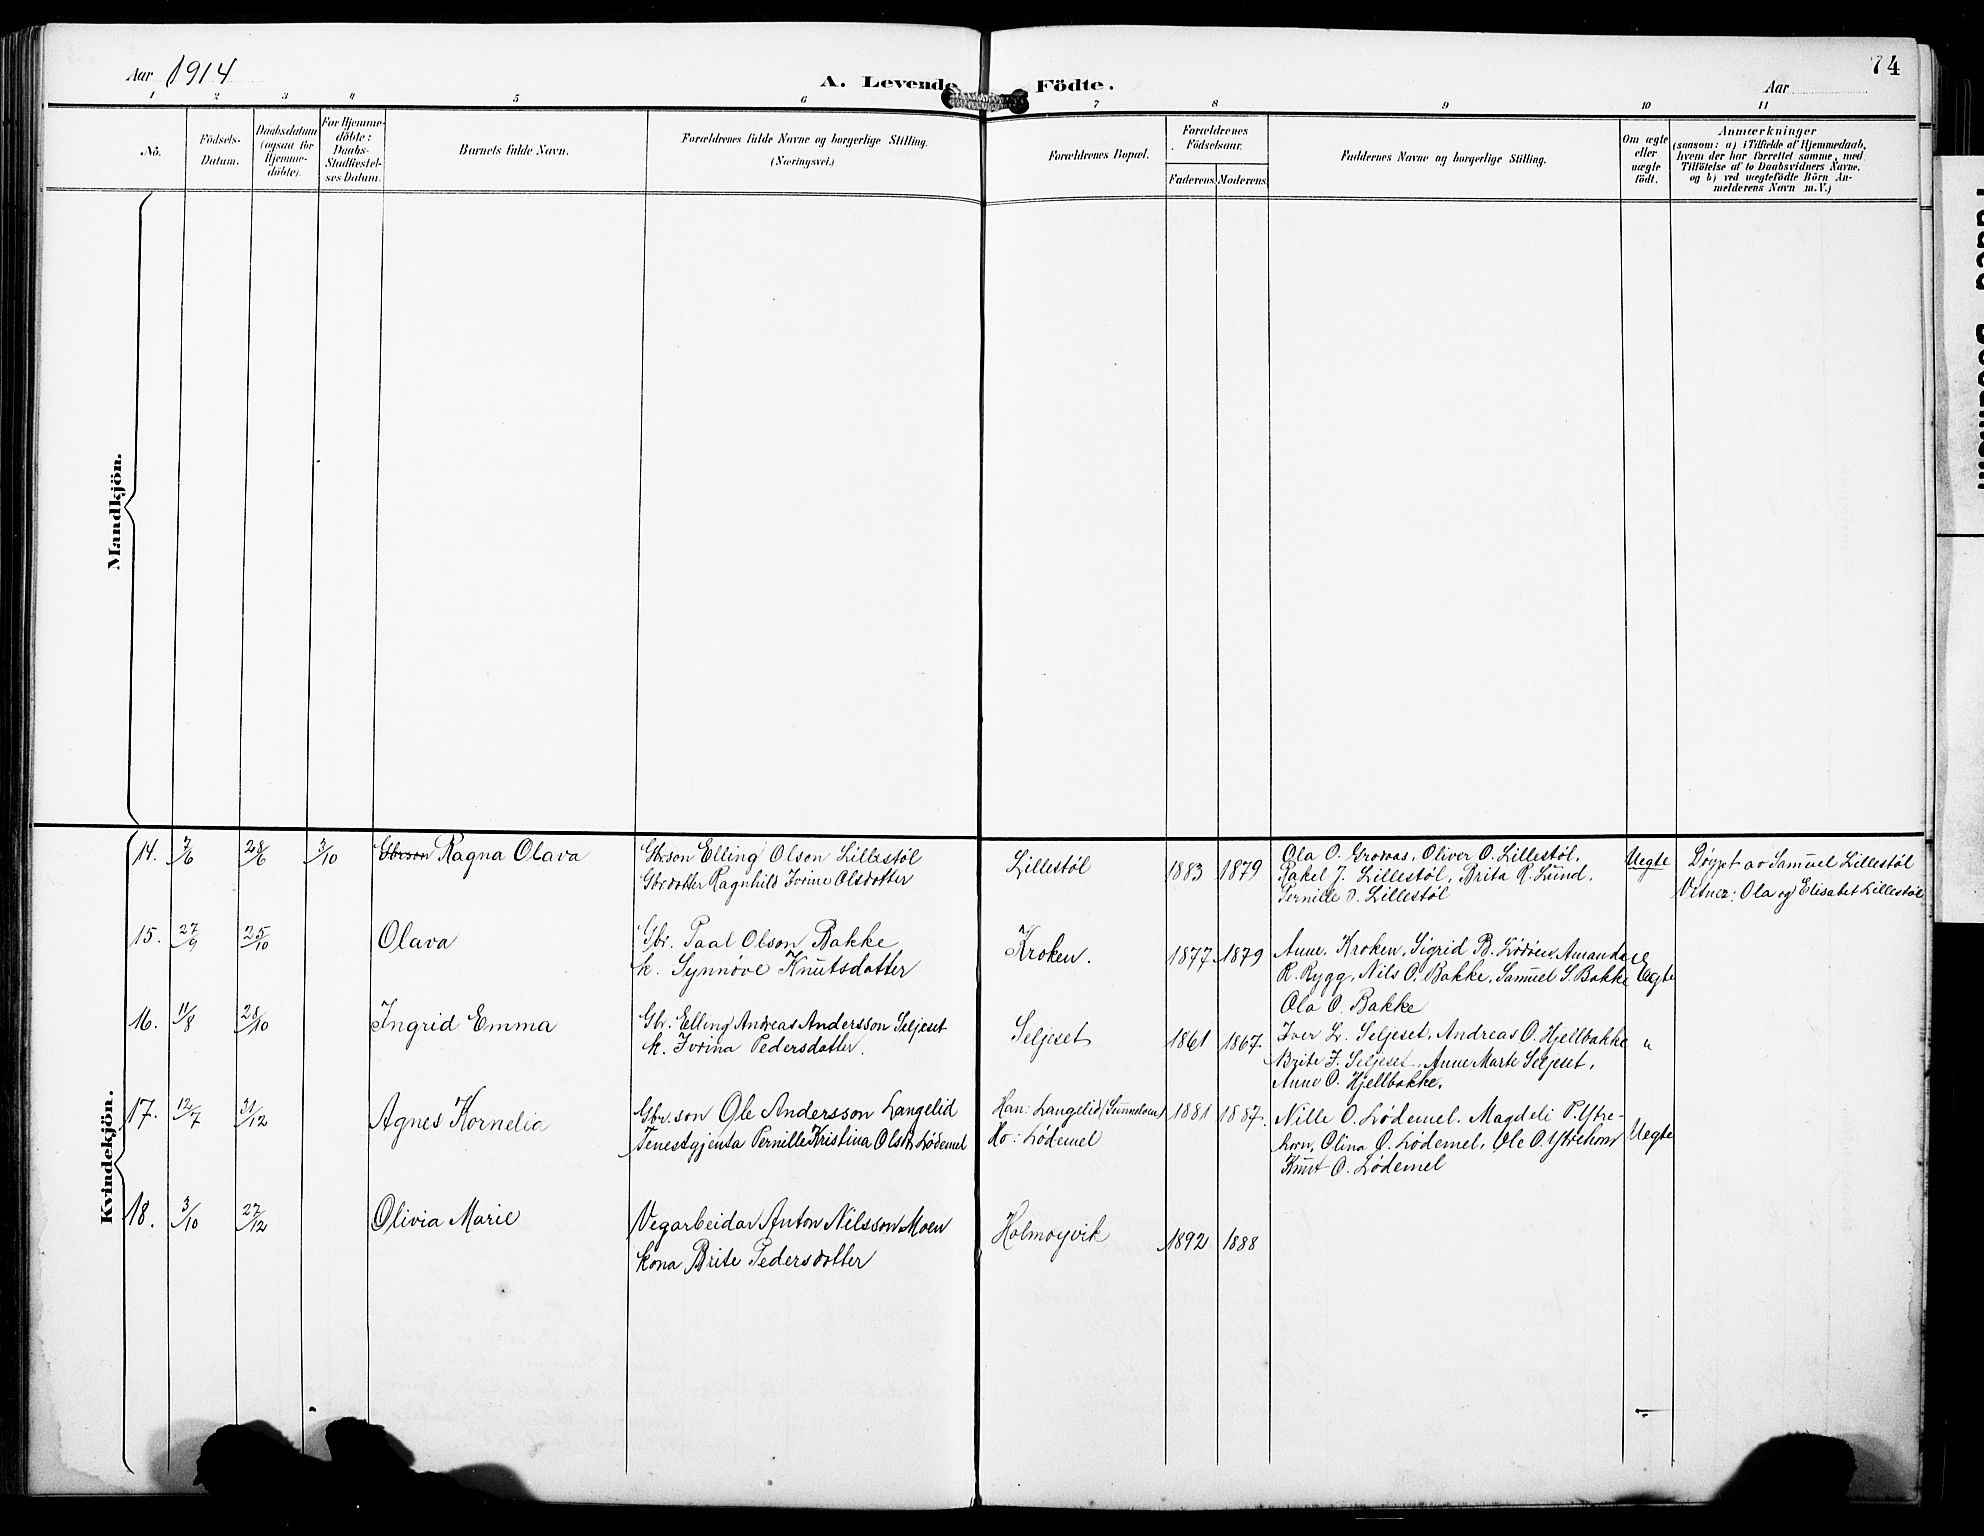 Aar 1914
A. Levende Födte.
Aar
74
1 2 3 4 5 6 7 8 9 10 11
No.
Födsels-
Datum.
Daabsdatum
(ogsaa for
Hjemme-
döbte).
For Hjemme-
döbte:
Daabs-
Stadfæstel-
ses Datum.
Barnets fulde Navn.
Forældrenes fulde Navne og borgerlige Stilling.
(Næringsvei.)
Forældrenes Bopæl.
Forældrenes
Födselsaar.
Faderens. Moderens.
Faddernes Navne og borgerlige Stilling.
Om ægte
eller
uægte
födt.
Anmærkninger
(saasom: a) i Tilfælde af Hjemmedaab,
hvem der har forrettet samme, med
Tilföielse af to Daabsvidners Navne.
og b) ved uægtefödte Börn An-
melderens Navn m. V.)
Mandkjön.
Kvindekjön.
14. 7/6 28/6 3/10 Gbrson Ragna Olava
Gbrson Elling Olson Lillestøl
Gbrdotter Ragnhild Ivrine Olsdotter
Lillestøl
1883 1879
Ola O. Grovas, Oliver O. Lillestøl,
Rakel J. Lillestøl, Brita R. Lund.
Pernille O. Lillestøl
Uegte
Døypt av Samuel Lillestøl
Vitner: Ola og Elisabet Lillestøl
15. 27/9 25/10 Olava
Gbr. Paal Olson Bakke
k. Synnøve Knutsdotter
Kroken.
1877 1879
Anne Kroken, Sigrid B. Lødøen, Amanda
R. Rygg, Nils O. Bakke, Samuel S. Bakke
Ola O. Bakke
Egte
16. 11/8 28/10 Ingrid Emma
Gbr. Elling Andreas Andersson Seljeset
k. Ivrina Pedersdotter.
Seljeset
1861 1867
Iver L. Seljeset, Andreas O. Hjellbakke
Brite J. Seljeset, Anne Marte Seljeset,
Anne O. Hjellbakke.
"
17. 12/7 31/12 Agnes Kornelia
Gbr.son Ole Andersson Langelid
Tenestgjenta Pernille Kristina Olsdtr Lødemel
Han: Langelid (Sunnelven)
Ho: Lødemel
1881 1887.
Nille O. Lødemel, Magdeli P. Ytre-
horn, Olina O. Lødemel, Ole O. Ytrehorn
Knut O. Lødemel
Uegte
18. 3/10 27/12 Olivia Marie
Vegarbeidar Anton Nilsson Moen
kona Brite Pedersdotter
Holmøyvik
1892 1888